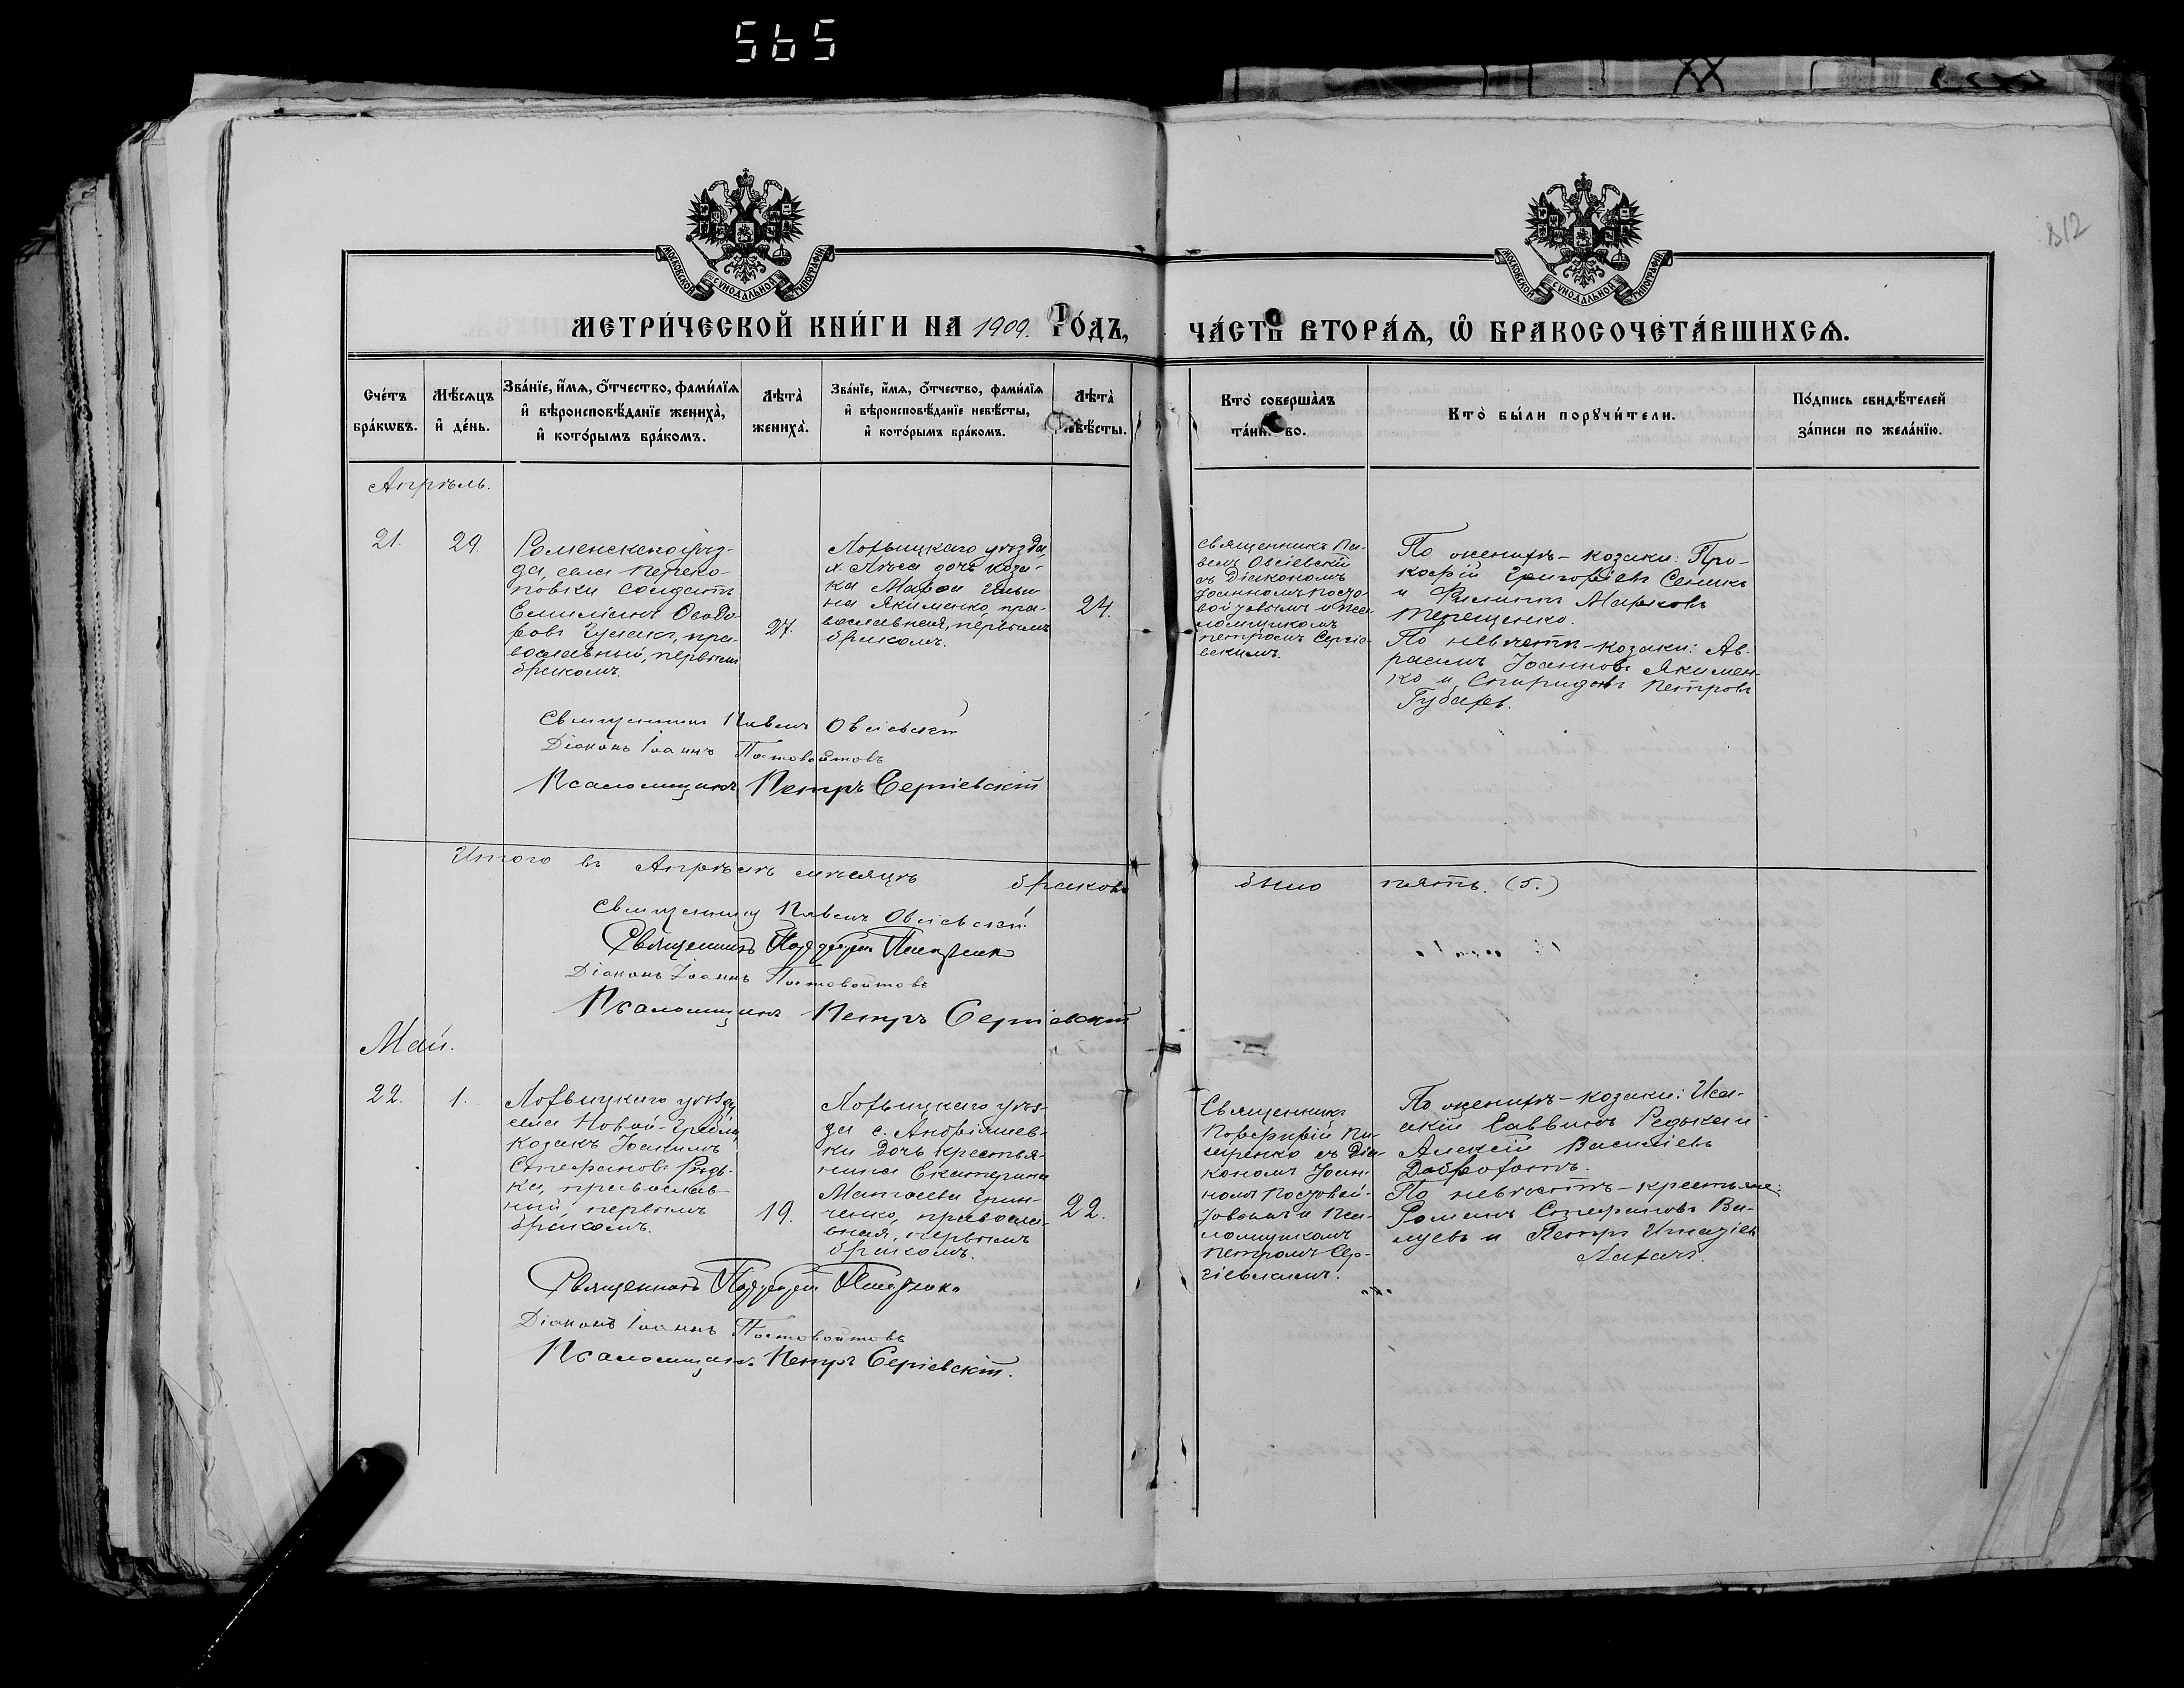 565
812
МОСКОВСКОЙ СѴНОДАЛЬНОЙ ТИПОГРАФІИ
МОСКОВСКОЙ СѴНОДАЛЬНОЙ ТИПОГРАФІИ
МЕТРИ́ЧЕСКОЙ КНИ́ГИ НА 1909. ГО́ДЪ,
ЧА́СТЬ ВТОРА́Ѧ, Ѽ БРАКОСОЧЕТА́ВШИХСѦ.
Сче́тъ
бра́кѡвъ.
Мѣ́сѧцъ
и҆ де́нь.
Зва́нїе, и҆́мѧ, ѻ҆́тчество, фами́лїѧ
и҆ вѣроисповѣ́данїе жениха̀,
и҆ кото́рымъ бра́комъ.
Лѣта̀
жениха̀.
Зва́нїе, и҆́мѧ, ѻ҆́тчество, фами́лїѧ
и҆ вѣроисповѣ́данїе невѣ́сты,
и҆ кото́рымъ бра́комъ.
Лѣта̀
невѣ́сты.
Кто̀ соверша̀лъ
та́инство.
Кто̀ бы́ли порꙋчи́тели.
По́дпись свидѣ́телей
за́писи по жела́нїю.
Апрѣль.
21.
29.
Роменскаго уѣз-
да, села Переко-
повки солдатъ
Емиліанъ
пра-
вославный, первымъ
бракомъ.
27.
Лохвицкаго уѣзда,
дочь коза-
ка Марѳа Ильи-
на Якименко, пра-
вославная, первымъ
бракомъ.
24.
Священникъ Па-
велъ Овсіевскій
съ Діакономъ
Іоанномъ Посто-
войтовымъ и Пса-
ломщикомъ
Петромъ Сергіе-
вскимъ.
По женихѣ – козаки: Про-
кофій Григоріевъ Сеникъ
и Филиппъ Марковъ
Терещенко.
По невѣстѣ – козаки: Ав-
рамъ Іоанновъ Якимен-
ко и Спиридонъ Петровъ
Губарь.
Священникъ Павелъ Овсіевскій
Діаконъ Іоаннъ Постовойтовъ
Псаломщикъ Петръ Сергіевскій
Итого въ Апрѣлѣ мѣсяцѣ браковъ
было пять. (5.)
Священникъ Павелъ Овсіевскій
Священникъ Порфирій Писаренко
Діаконъ Іоаннъ Постовойтовъ
Псаломщикъ Петръ Сергіевскій
Май.
22.
1.
Лохвицкаго уѣзда,
села Новой-Гребли,
козакъ Іоакимъ
Стефановъ Рѣдь-
ка, православ-
ный, первымъ
бракомъ.
19.
Лохвицкаго уѣз-
да с. Андріяшев-
ки дочь крестья-
нина Екатерина
Матѳеева Грин-
ченко, правосла-
вная, первымъ
бракомъ.
22.
Священникъ
Порфирій Пи-
саренко съ Діа-
кономъ Іоан-
номъ Постовой-
товымъ и Пса-
ломщикомъ
Петромъ Сер-
гіевскимъ.
По женихѣ – козаки: Иса-
акій Саввинъ Редька и
Алексій Василіевъ
По невѣстѣ – крестьяне:
Романъ Стефановъ Ва-
и Петръ Игнатіевъ
Священникъ Порфирій Писаренко
Діаконъ Іоаннъ Постовойтовъ
Псаломщикъ Петръ Сергіевскій.